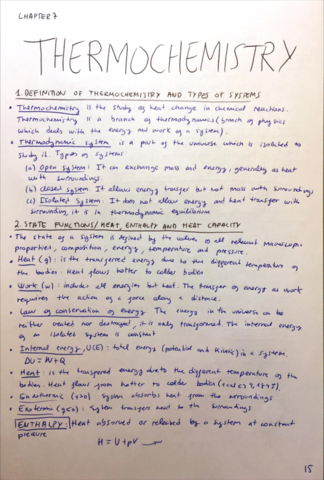 CHAPTER 7
THERMOCHEMISTRY
1. DEFINITION OF THERMOCHEMISTRY AND TYPES OF SYSTEMS
• Thermochemistry is the study of heat change in chemical reactions.
Thermochemistry is a branch of thermodynamics (branch of physics
which deals with the energy and work of a system).
• Thermodynamic system is a part of the universe which is isolated to
study it. Types of systems
(a) Open system: It can exchange mass and energy, generally as heat
with surroundings
(b) closed system: It allows energy transfer but not mass with surroundings
(c) Isolated System: It does not allow energy and heat transfer with
surrounding, it is in thermodynamic equilibrium
2. STATE FUNCTIONS / HEAT, ENTHALPY AND HEAT CAPACITY
• The state of a system is defined by the values of all relevant macroscopic
properties, composition, energy, temperature and pressure.
• Heat (q): is the transfered energy due to the different temperature of
the bodies. Heat flows hotter to colder bodies
• Work (w): includes all energies but heat. The transfer of energy as work
requires the action of a force along a distance.
• Law of conservation of energy The energy in the universe can be
neither created nor destroyed, it is only transformed. The internal energy
of an isolated system is constant
• Internal energy, U(E): total energy (potential and kinetic) in a system.
DU = W + Q
• Heat: is the transfered energy due to the different temperature of the
bodies. Heat flows from hotter to colder bodies
• Exothermic System absorbs heat from the surroundings
• Exotermic (q<0) System transfers heat to the surroundings
ENTHALPY: Heat absorbed or released by a system at constant
pressure
H = U + pV
15